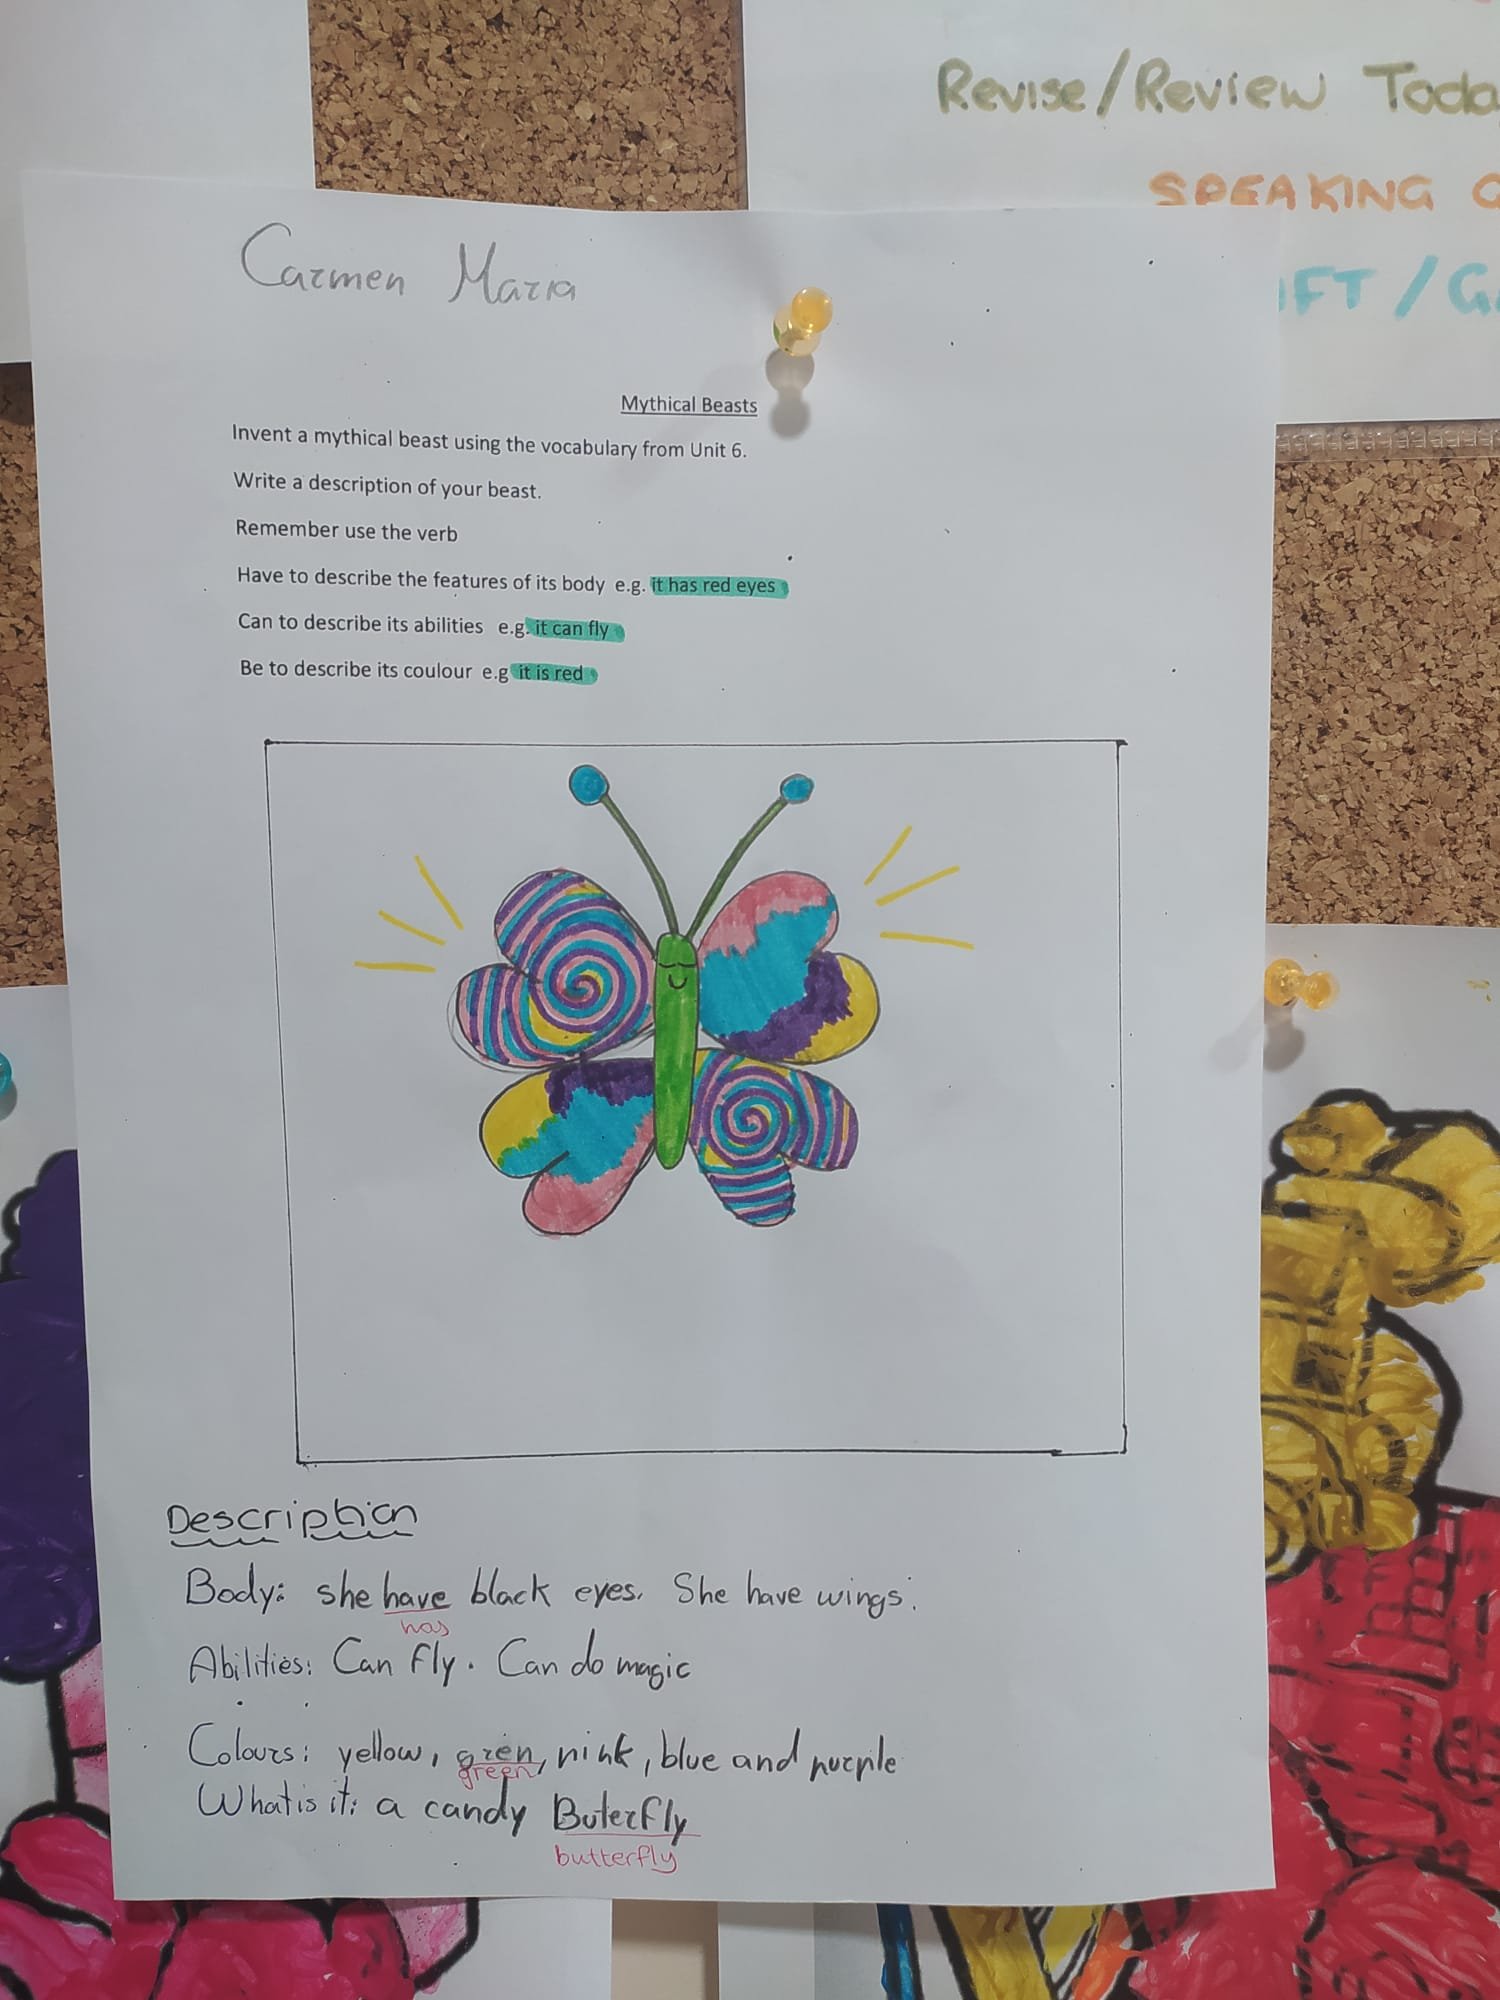 Revise/Review Toda
SPEAKING
Carmen Maria
Mythical Beasts
Invent a mythical beast using the vocabulary from Unit 6.
Write a description of your beast.
Remember use the verb
Have to describe the features of its body e.g. it has red eyes
Can to describe its abilities e.g. it can fly
Be to describe its coulour e.g it is red
Description
Body: she have black eyes. She have wings.
has
Abilities: Can fly. Can do magic
Colours: yellow, gren, pink, blue and purple
green
What is it: a candy Buterfly
butterfly